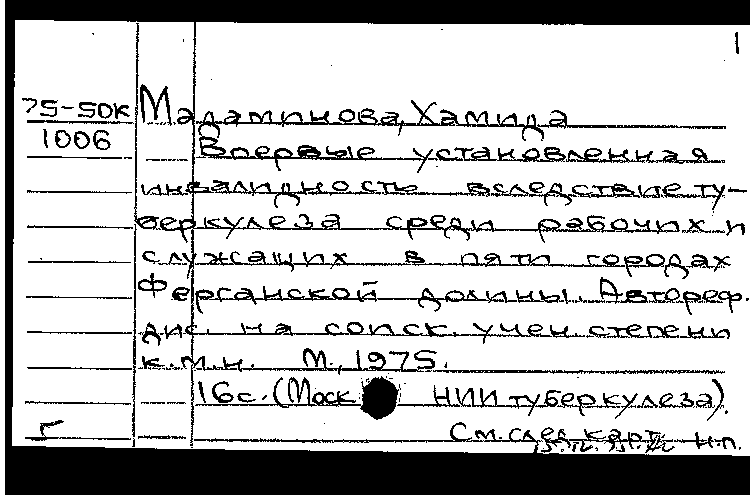 1
75-50к Мадаминова, Хамида
1006 Впервые установленная
инвалидность вследствие ту-
беркулеза среди рабочих и
служащих в пяти городах
Ферганской долины. Автореф.
дис. на соиск. учен. степени
к.м.н. М., 1975.
16с. (Моск НИИ туберкулеза).
См. след. карт. н.п.